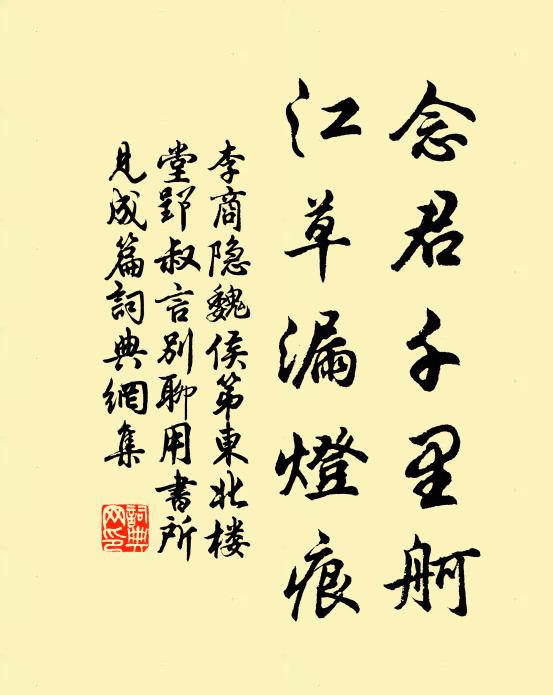 念君千里舸
江草漏燈痕
李商隐魏侯第東北楼
堂郢叔言别聊用書所
見成篇詞典網集
詞典
网印